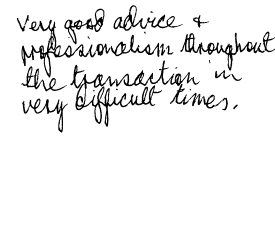 Very good advice &
professionalism throughout
the transaction in
very difficult times.